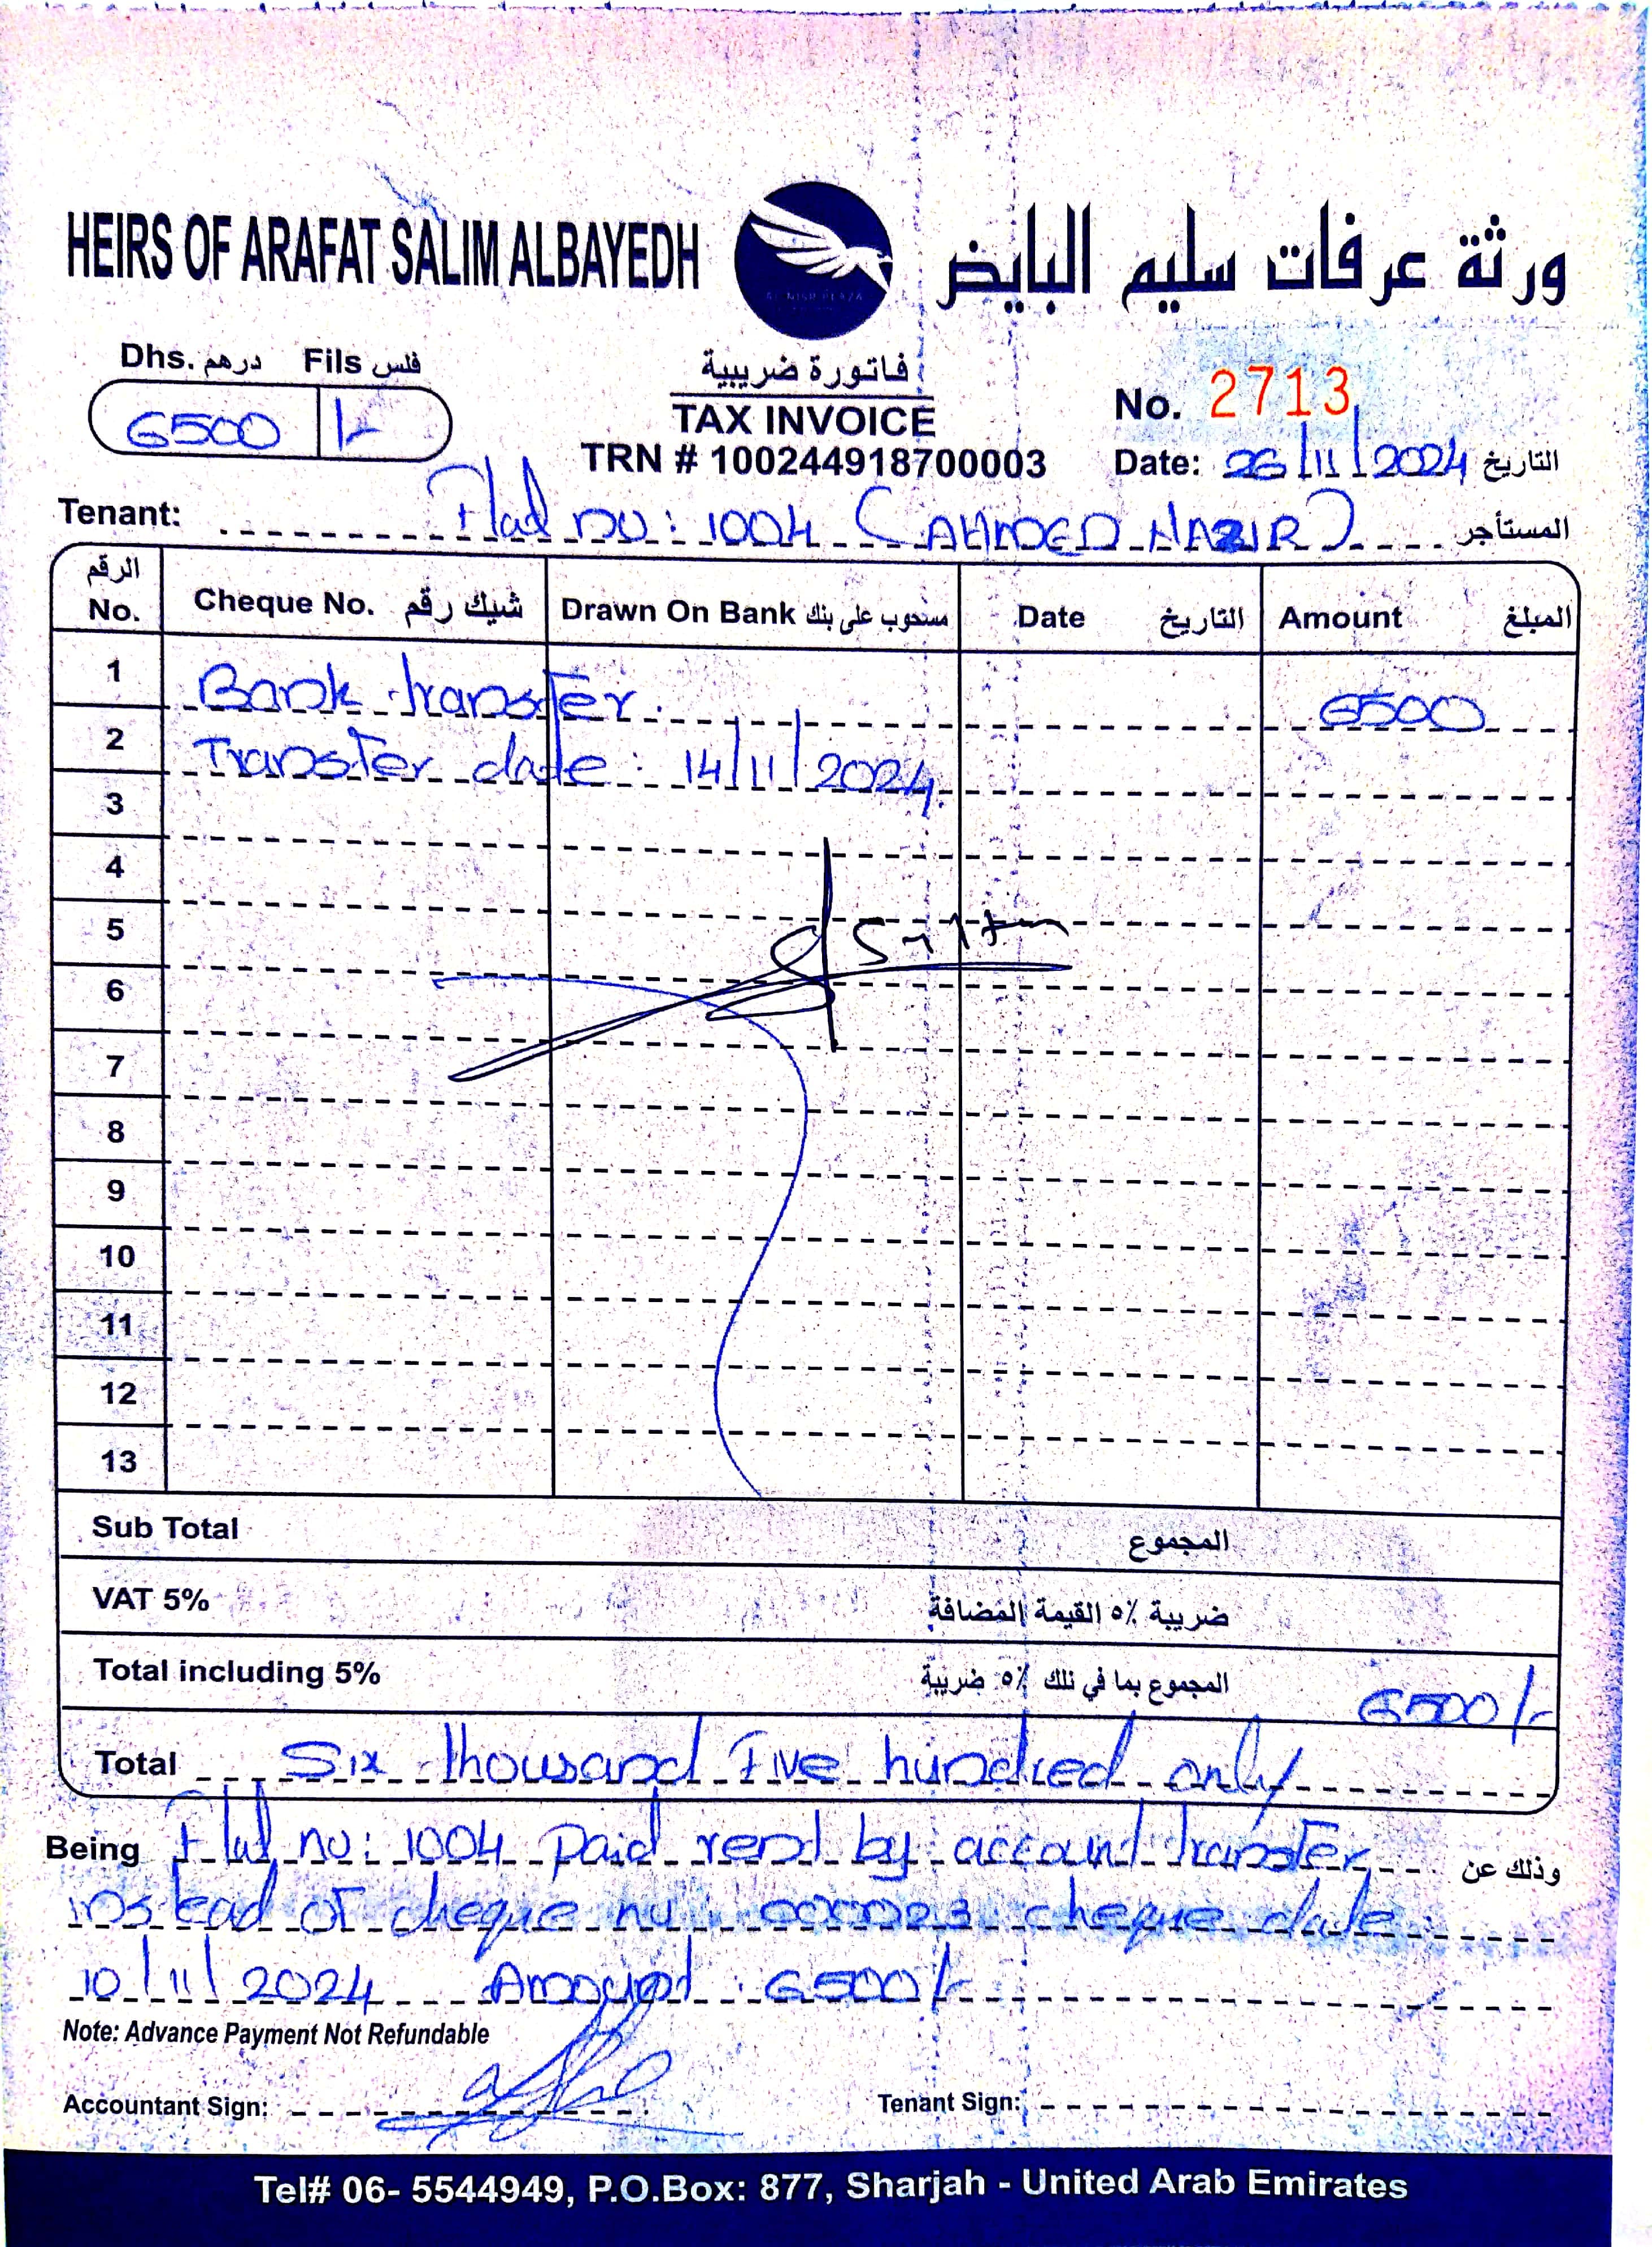 HEIRS OF ARAFAT SALIM ALBAYEDH
ورثة عرفات سليم البايض
Dhs. درهم Fils فلس
6500 /-
فاتورة ضريبية
TAX INVOICE
TRN # 100244918700003
No. 2713
Date: 26/11/2024 التاريخ
Tenant: Flat no: 1004 (AHMED NAZIR) المستأجر
الرقم No. Cheque No. شيك رقم Drawn On Bank مسحوب على بنك Date التاريخ Amount المبلغ
1 Bank transfer. 6500
2 Transfer date: 14/11/2024.
3
4
5
6
7
8
9
10
11
12
13
Sub Total المجموع
VAT 5% ضريبة ٥٪ القيمة المضافة
Total including 5% المجموع بما في ذلك ٥٪ ضريبة 6500/-
Total Six thousand Five hundred only
Being Flat no: 1004 paid rent by account transfer وذلك عن
instead of cheque no: 000023 cheque date:
10/11/2024 Amount: 6500/-
Note: Advance Payment Not Refundable
Accountant Sign: Tenant Sign:
Tel# 06- 5544949, P.O.Box: 877, Sharjah - United Arab Emirates